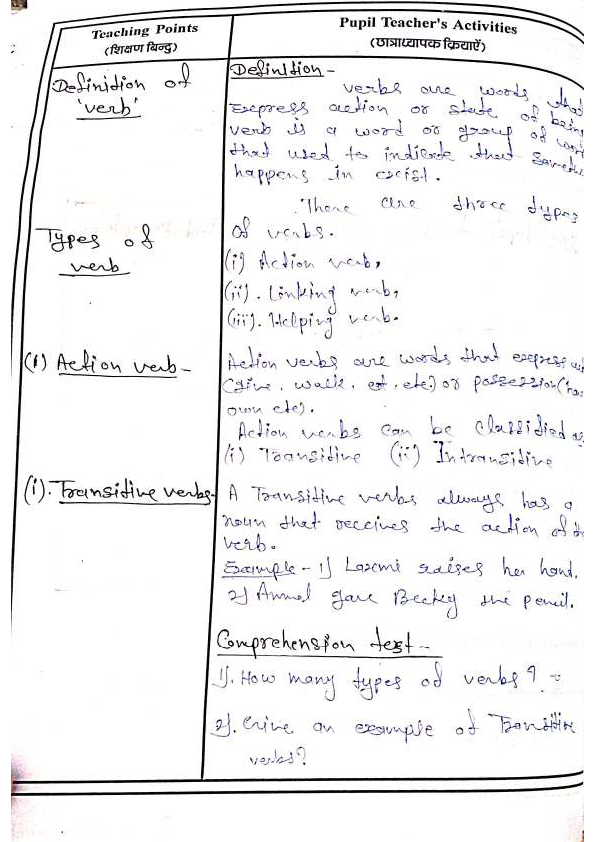 Teaching Points
(शिक्षण बिन्दु)
Pupil Teacher's Activities
(छात्राध्यापक क्रियाएँ)
Definition of
'verb'
Definition -
verbs are words that
express action or state of being
verb is a word or group of wor
that used to indicate that Someth
happens in excist.
There are three types
Types of
verb
of verbs.
(i) Action verb,
(ii). Linking verb,
(iii). Helping verb.
(1) Action verb -
Action verbs are words that express
(give, walk, etc.) or possession (ha
own etc).
Action verbs can be Classified as
(i) Transitive (ii) Intransitive
(i). Transitive verbs -
A Transitive verbs always has a
noun that receives the action of th
verb.
Example - 1) Laxmi raises her hand.
2) Anmol gave Beckey the pencil.
Comprehension test -
1). How many types of verbs? -
2). Give an example of Transitive
verbs?